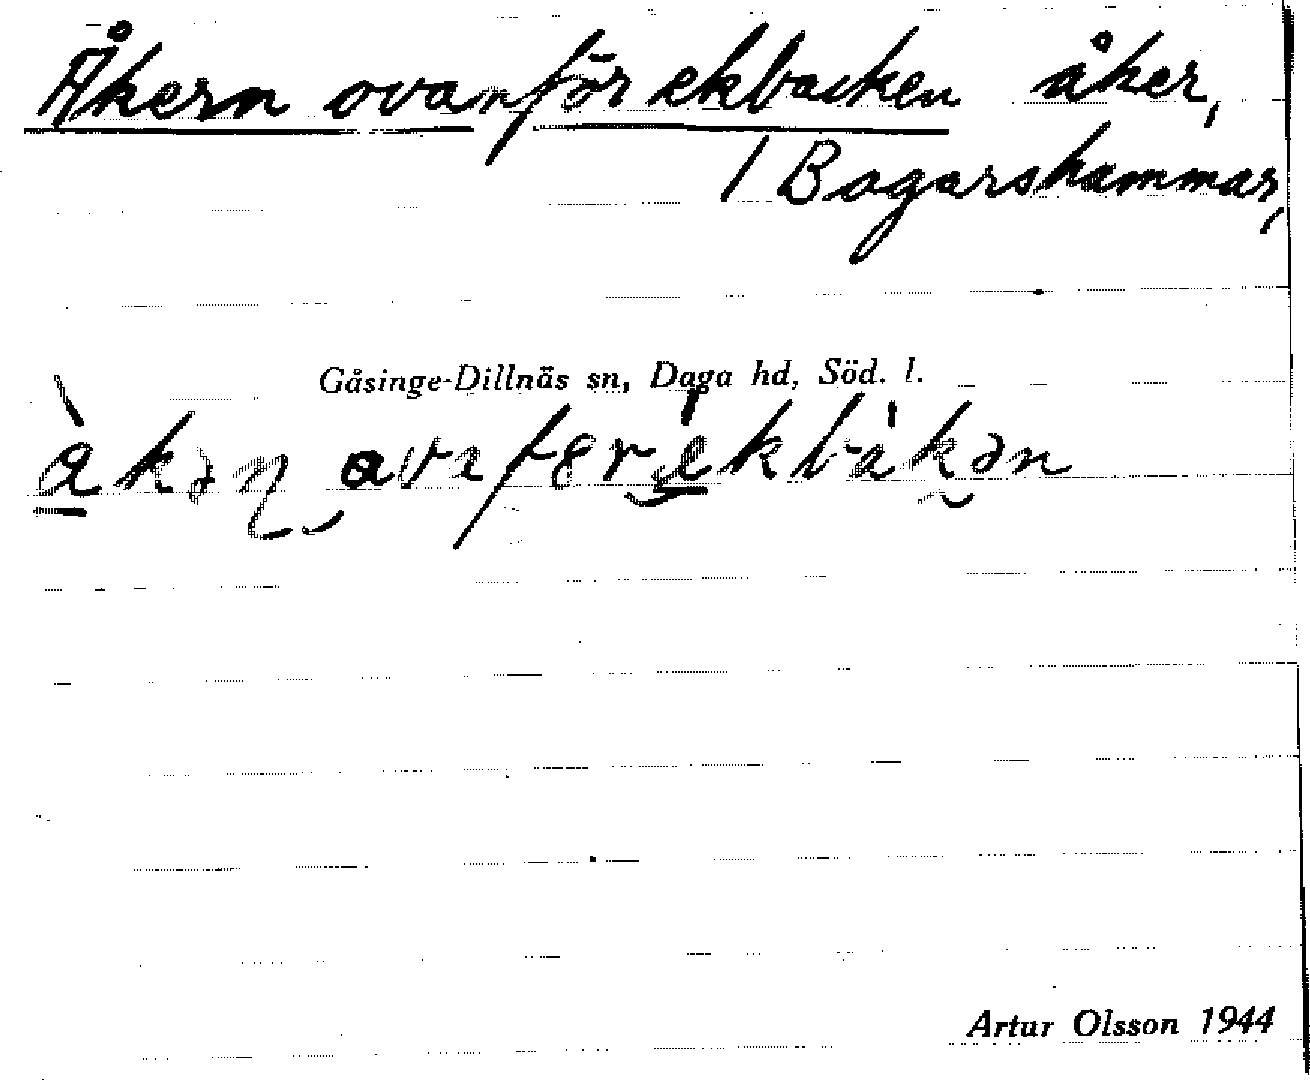 Åkern ovanför ekbacken åker,
/ Bagarshammar,
Gåsinge-Dillnäs sn, Daga hd, Söd. l.
Artur Olsson 1944